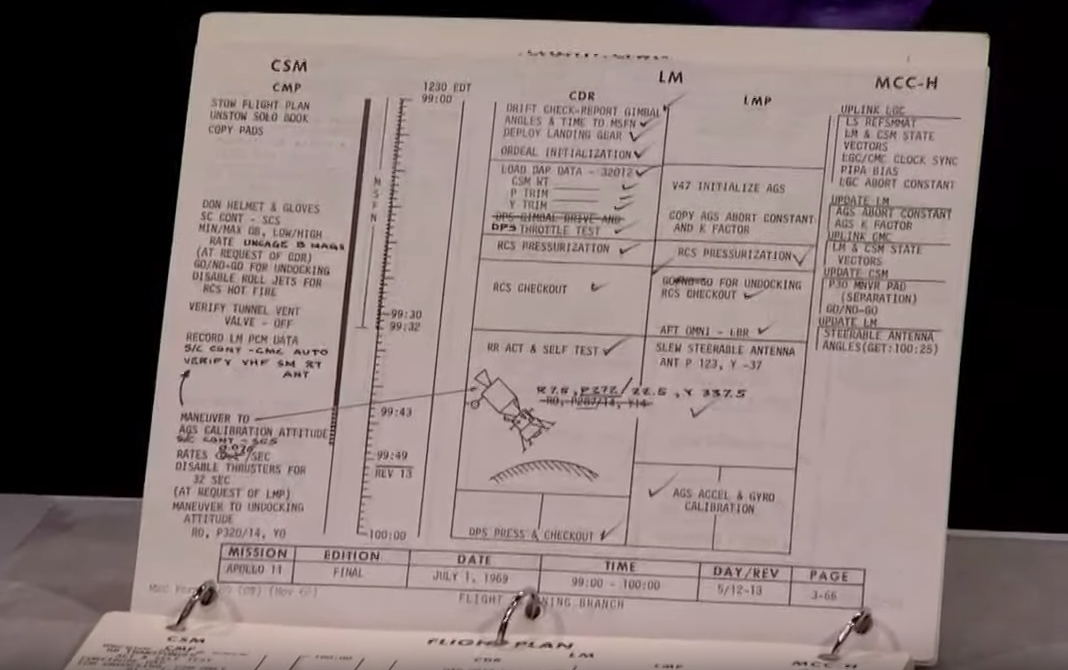 CSM
LM
MCC-H
CMP
CDR
LMP
STOW FLIGHT PLAN
UNSTOW SOLO BOOK
COPY PADS
DON HELMET & GLOVES
SC CONT - SCS
MIN/MAX DB, LOW/HIGH
RATE UNCAGE B MAGS
(AT REQUEST OF CDR)
GO/NO-GO FOR UNDOCKING
DISABLE ROLL JETS FOR
RCS HOT FIRE
VERIFY TUNNEL VENT
VALVE - OFF
RECORD LM PCM DATA
S/C CONT -CMC AUTO
VERIFY VHF SM RT
ANT
MANEUVER TO
AGS CALIBRATION ATTITUDE
S/C CONT - SCS
RATES /SEC
DISABLE THRUSTERS FOR
32 SEC
(AT REQUEST OF LMP)
MANEUVER TO UNDOCKING
ATTITUDE
RO, P320/14, YO
1230 EDT
99:00
MSFN
99:30
99:32
99:43
99:49
REV 13
100:00
DRIFT CHECK-REPORT GIMBAL
ANGLES & TIME TO MSFN
DEPLOY LANDING GEAR
ORDEAL INITIALIZATION
LOAD DAP DATA - 32012
CSM WT
P TRIM
Y TRIM
DPS GIMBAL DRIVE AND
DPS THROTTLE TEST
RCS PRESSURIZATION
RCS CHECKOUT
RR ACT & SELF TEST
R 7.5, P272/22.5, Y 337.5
RO, P287/14, Y14
DPS PRESS & CHECKOUT
V47 INITIALIZE AGS
COPY AGS ABORT CONSTANT
AND K FACTOR
RCS PRESSURIZATION
GO/NO-GO FOR UNDOCKING
RCS CHECKOUT
AFT OMNI - LBR
SLEW STEERABLE ANTENNA
ANT P 123, Y -37
AGS ACCEL & GYRO
CALIBRATION
UPLINK LGC
LS REFSMMAT
LM & CSM STATE
VECTORS
LGC/CMC CLOCK SYNC
PIPA BIAS
LGC ABORT CONSTANT
UPDATE LM
AGS ABORT CONSTANT
AGS K FACTOR
UPLINK CMC
LM & CSM STATE
VECTORS
UPDATE CSM
P30 MNVR PAD
(SEPARATION)
GO/NO-GO
UPDATE LM
STEERABLE ANTENNA
ANGLES(GET:100:25)
MISSION EDITION DATE TIME DAY/REV PAGE
APOLLO 11 FINAL JULY 1, 1969 99:00 - 100:00 5/12-13 3-66
FLIGHT PLANNING BRANCH
FLIGHT PLAN
CSM
CMP
CDR
LM
LMP
MCC-H